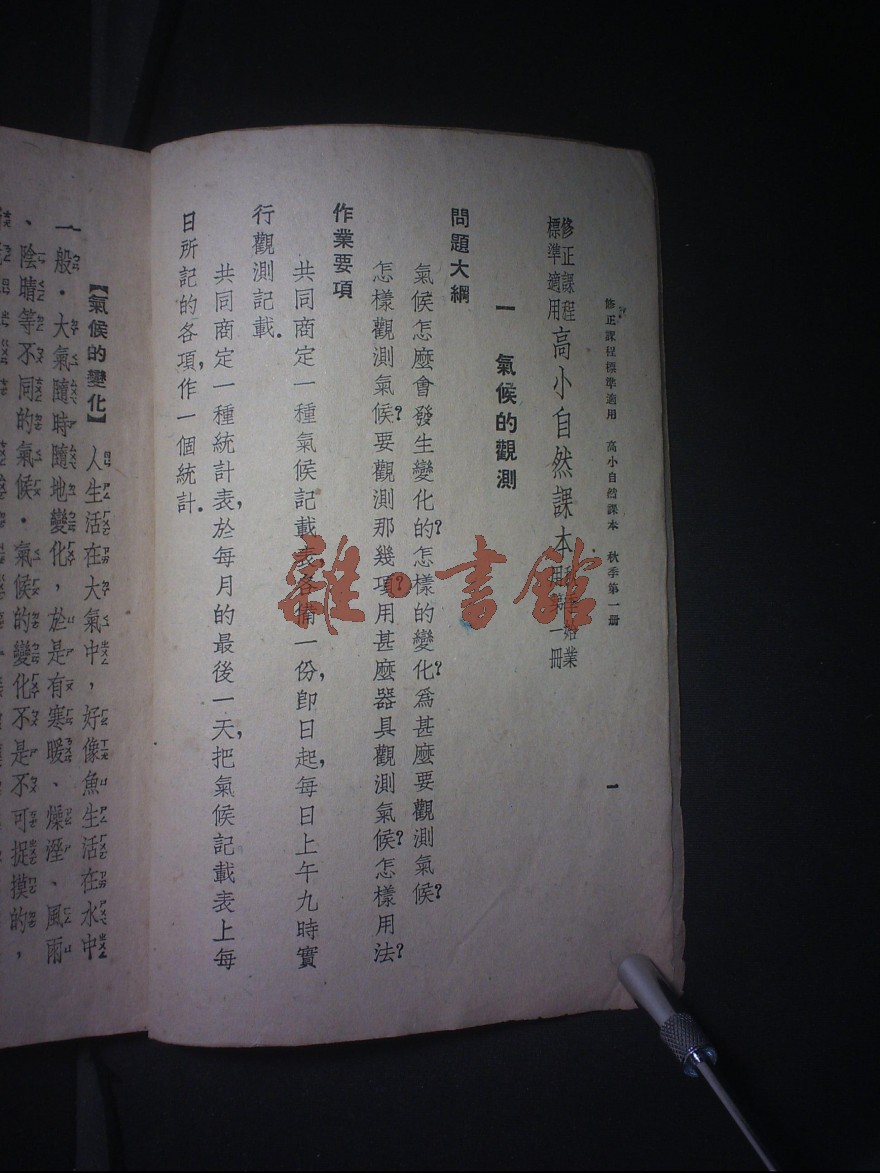 修正課程標準適用　高小自然課本　秋季第一冊　一
修正課程
標準適用
高小自然課本
秋季始業
用第一冊
一　氣候的觀測
問題大綱
氣候怎麼會發生變化的?怎樣的變化?爲甚麼要觀測氣候?
怎樣觀測氣候?要觀測那幾項?用甚麼器具觀測氣候?怎樣用法?
作業要項
共同商定一種氣候記載表,各備一份,卽日起,每日上午九時實
行觀測記載.
共同商定一種統計表,於每月的最後一天,把氣候記載表上每
日所記的各項,作一個統計.
【氣候的變化】　人生活在大氣中，好像魚生活在水中
一般．大氣隨時隨地變化，於是有寒暖、燥溼、風雨
、陰晴等不同的氣候．氣候的變化不是不可捉摸的，
雜·書館